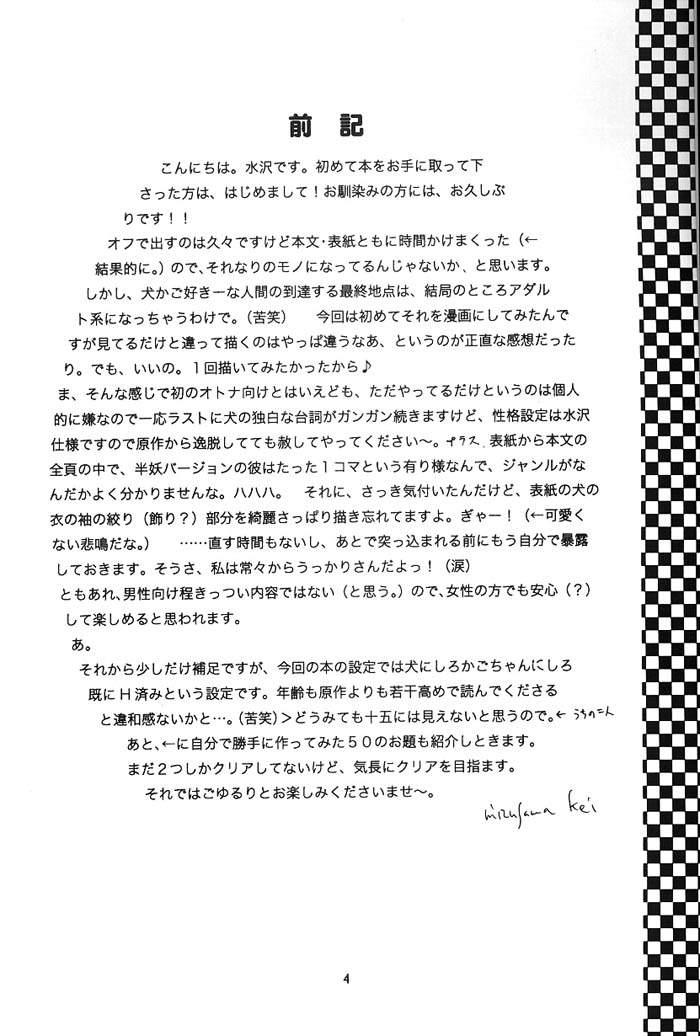 前記
こんにちは。水沢です。初めて本をお手に取って下
さった方は、はじめまして！お馴染みの方には、お久しぶ
りです！！
オフで出すのは久々ですけど本文・表紙ともに時間かけまくった（←
結果的に。）ので、それなりのモノになってるんじゃないか、と思います。
しかし、犬かご好きーな人間の到達する最終地点は、結局のところアダル
ト系になっちゃうわけで。（苦笑）　今回は初めてそれを漫画にしてみたんで
すが見てるだけと違って描くのはやっぱ違うなあ、というのが正直な感想だった
り。でも、いいの。１回描いてみたかったから♪
ま、そんな感じで初のオトナ向けとはいえども、ただやってるだけというのは個人
的に嫌なので一応ラストに犬の独白な台詞がガンガン続きますけど、性格設定は水沢
仕様ですので原作から逸脱してても赦してやってください〜。プラス、表紙から本文の
全頁の中で、半妖バージョンの彼はたった１コマという有り様なんで、ジャンルがな
んだかよく分かりませんな。ハハハ。　それに、さっき気付いたんだけど、表紙の犬の
衣の袖の絞り（飾り？）部分を綺麗さっぱり描き忘れてますよ。ぎゃー！（←可愛く
ない悲鳴だな。）　……直す時間もないし、あとで突っ込まれる前にもう自分で暴露
しておきます。そうさ、私は常々からうっかりさんだよっ！（涙）
ともあれ、男性向け程きっつい内容ではない（と思う。）ので、女性の方でも安心（？）
して楽しめると思われます。
あ。
それから少しだけ補足ですが、今回の本の設定では犬にしろかごちゃんにしろ
既にＨ済みという設定です。年齢も原作よりも若干高めで読んでくださる
と違和感ないかと…。（苦笑）＞どうみても十五には見えないと思うので。←うちの二人
あと、←に自分で勝手に作ってみた５０のお題も紹介しときます。
まだ２つしかクリアしてないけど、気長にクリアを目指します。
それではごゆるりとお楽しみくださいませ〜。
mizusawa kei
4